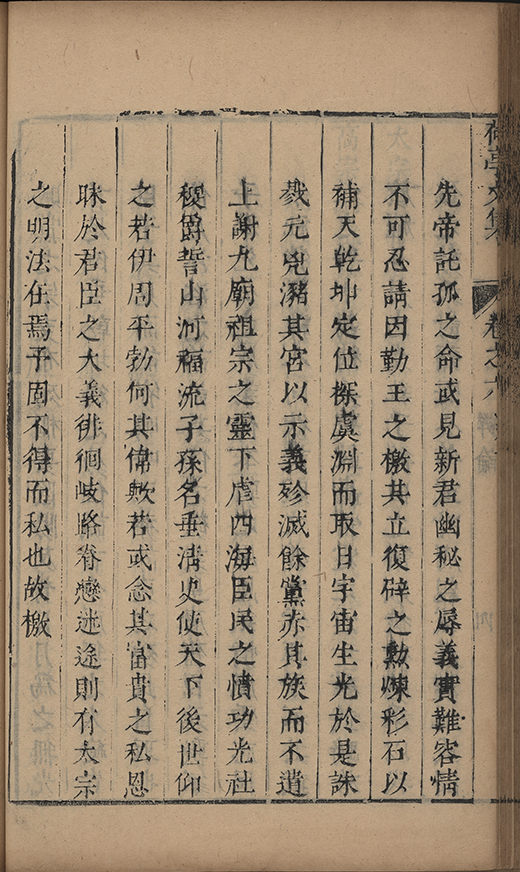 先帝託孤之命或見新君幽秘之辱義實難容情
不可忍請因勤王之檄其立復辟之勲煉彩石以
補天乾坤定位探虞淵而取日宇宙生光於是誅
戮元兇瀦其宮以示義殄滅餘黨赤其族而不遺
上謝九廟祖宗之靈下虐四海臣民之憤功光社
稷爵誓山河福流子孫名垂清史使天下後世仰
之若伊周平勃何其偉歟若或念其富貴之私恩
昧於君臣之大義徘徊岐路眷戀迷途則有太宗
之明法在焉予固不得而私也故檄
亭文集
卷之六